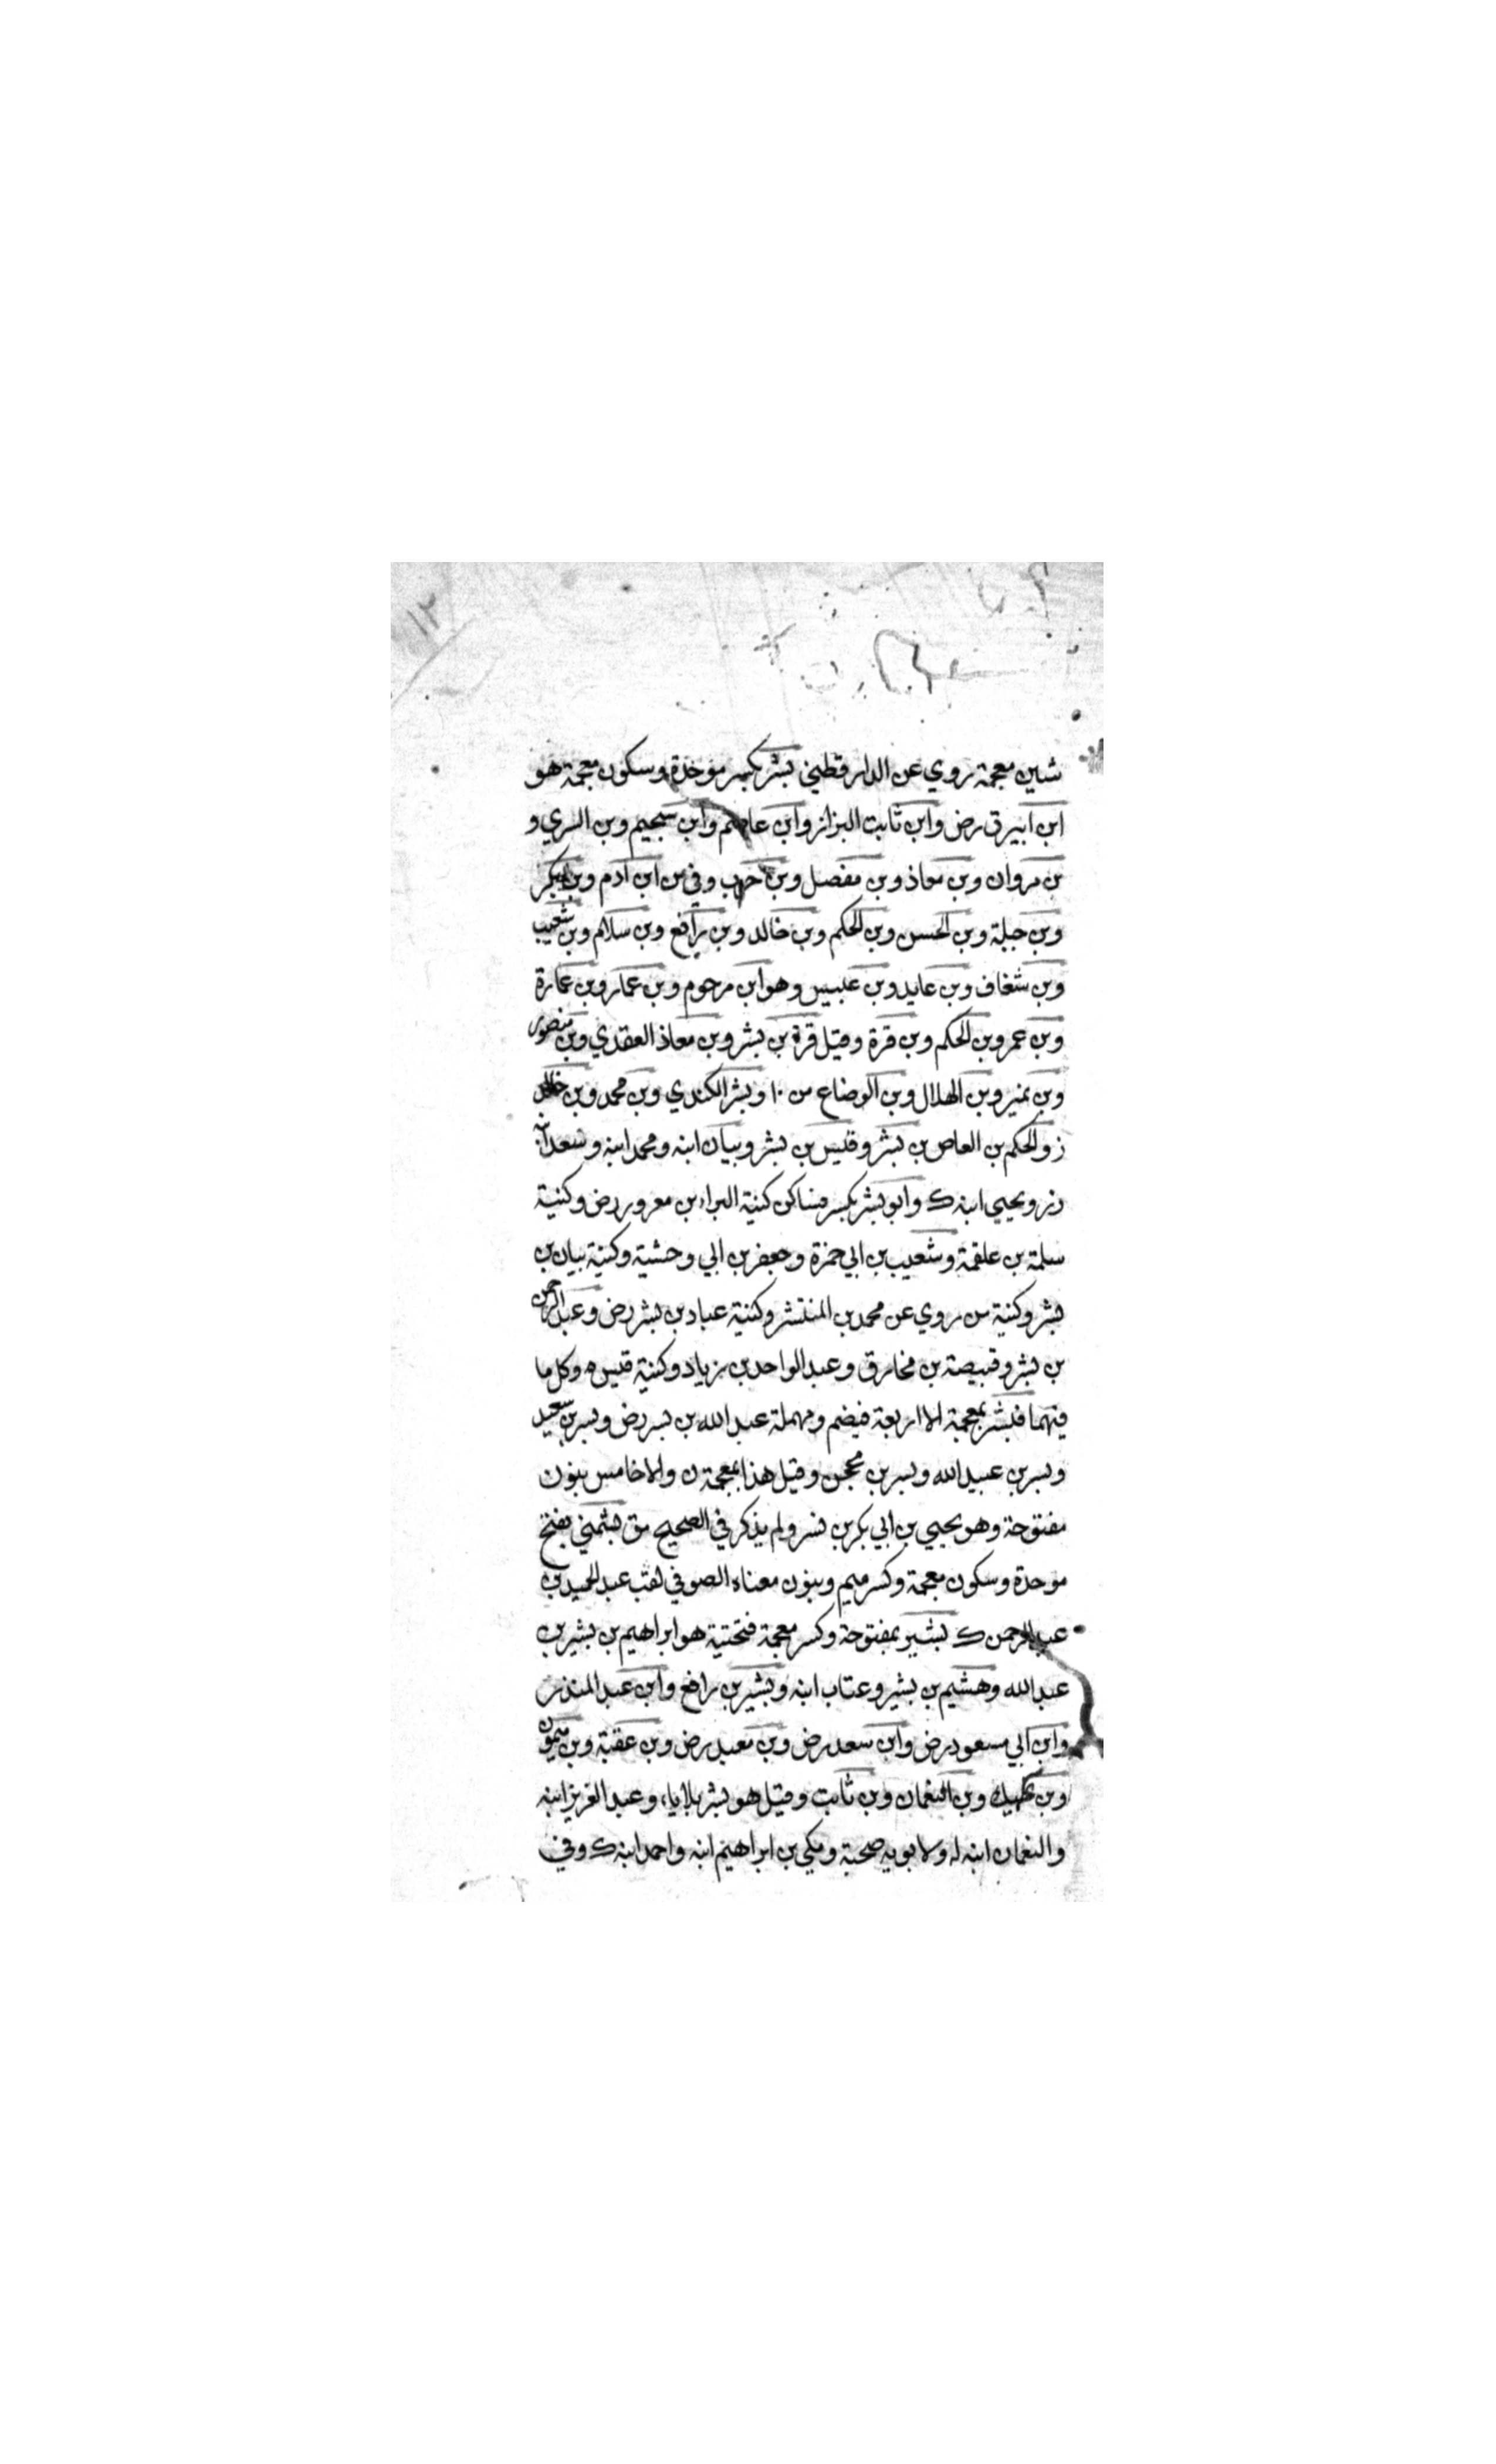 ١٢
شين معجمة روي عن الدارقطني بشر بكسر موحدة وسكون معجمة هو
ابن ابيرق رض وابن ثابت البزاز وابن عاصم وابن سحيم وبن السري و
بن مروان وبن معاذ وبن مفصل وبن حرب وفي من ابن ادم وبن بكر
وبن جبلة وبن الحسن وبن الحكم وبن خالد وبن رافع وبن سلام وبن شعيب
وبن شغاف وبن عايد وبن عبيس وهو ابن مرحوم وبن عمار وبن عمارة
وبن عمر وبن الحكم وبن قرة وقيل قرة بن بشر وبن معاذ العقدي وبن منصور
وبن نمير وبن الهلال وبن الوضاع من ١٠ وبشر الكندي وبن محمد وبن خالد
ز والحكم بن العاص بن بشر وقيس بن بشر وبيان ابنه ومحمد ابنه وسعد ابنه
رز ويحيي ابنه ك وابو بشر بكسر فساكن كنية البراء بن معرور رض وكنية
سلمة بن علقمة وشعيب بن ابي حمزة وجعفر بن ابي وحشية وكنية بيان بن
بشر وكنية من روي عن محمد بن المنتشر وكنية عباد بن بشر رض وعبد الرحمن
بن بشر وقبيصة بن مخارق وعبد الواحد بن زياد وكنية قيس ه وكل ما
فيهما فبشر بمعجمة الا اربعة فبضم ومهملة عبد الله بن بسر رض وبسر بن سعيد
وبسر بن عبيد الله وبسر بن محجن وقيل هذا بمعجمة ن والا خامس بنون
مفتوحة وهو يحيي بن ابي بكر بن نسر ولم يذكر في الصحيح مق بشمني بفتح
موحدة وسكون معجمة وكسر ميم وبنون معناه الصوفي لقب عبد الحميد بن
عبد الرحمن ك بشير بمفتوحة وكسر معجمة فتحتية هو ابراهيم بن بشير بن
عبد الله وهشيم بن بشير وعتاب ابنه وبشير بن رافع وابن عبد المنذر
وابن ابي مسعود رض وابن سعد رض وبن معبد رض وبن عقبة وبن ميمون
وبن نهيك وبن النعمان وبن ثابت وقيل هو بشر بلا ياء وعبد العزيز ابنه
والنعمان ابنه له ولابويه صحبة ومكي بن ابراهيم ابنه واحمد ابنه ك وفي